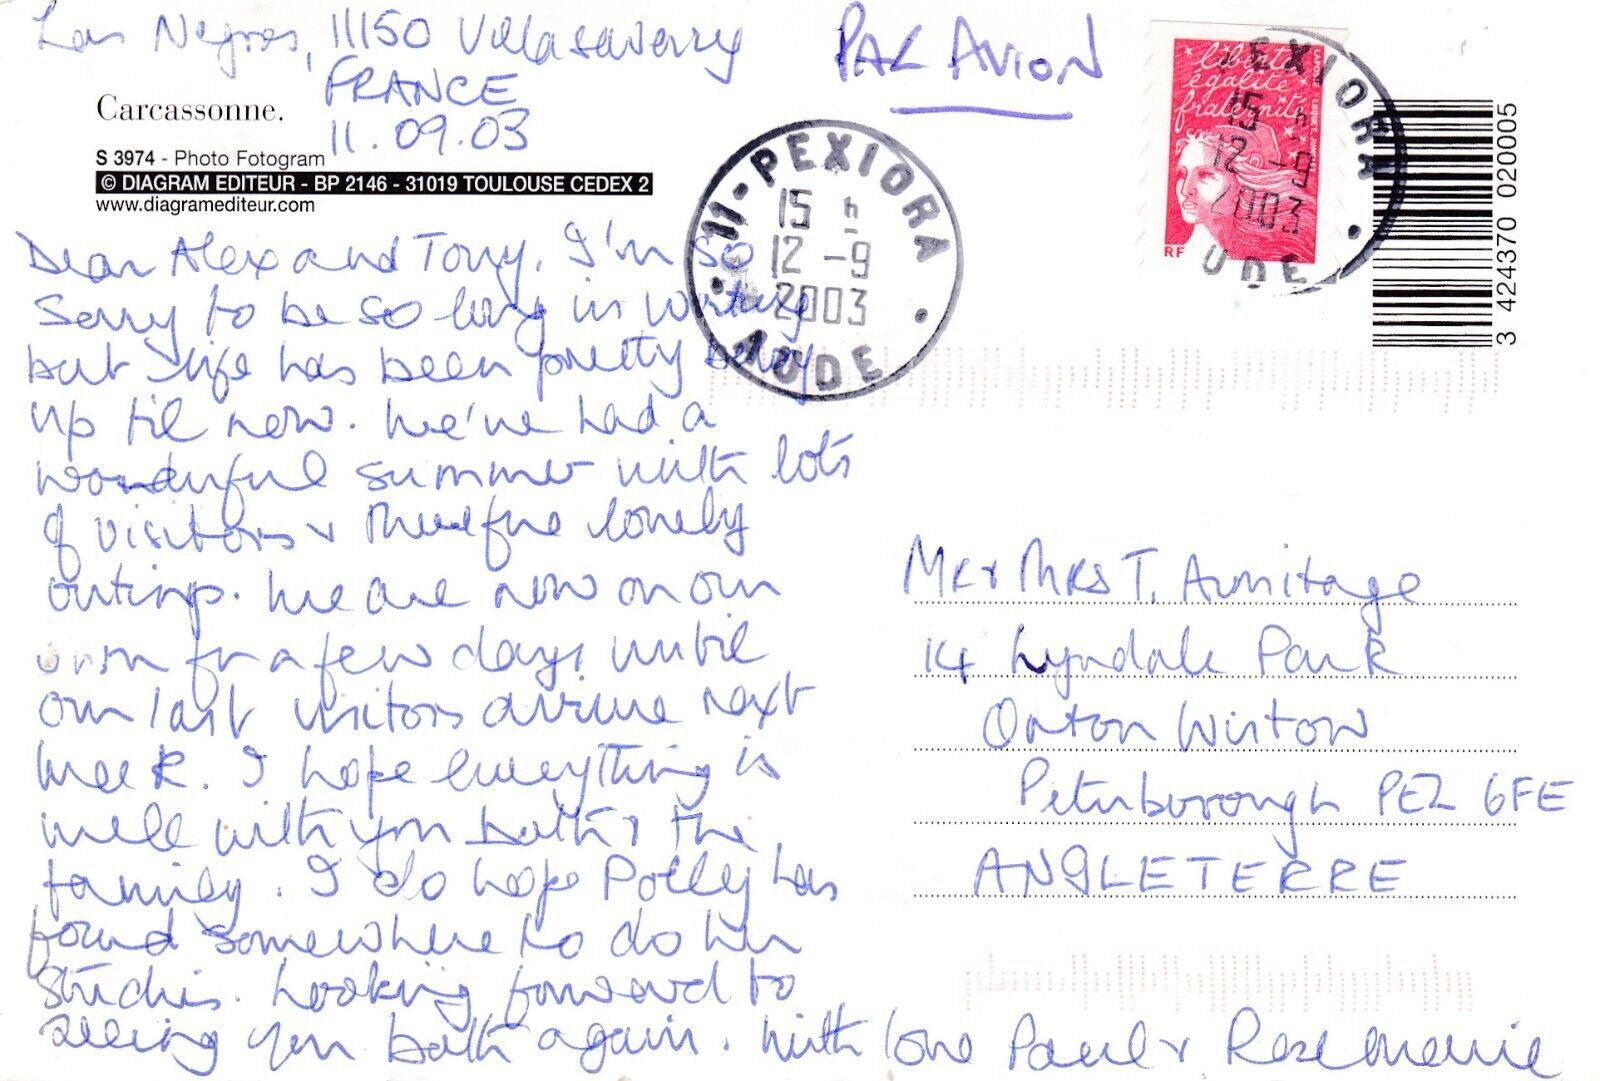 Las Negres, 11150 Villasavary
FRANCE
11.09.03
PAR AVION
Carcassonne.
S 3974 - Photo Fotogram
© DIAGRAM EDITEUR - BP 2146 - 31019 TOULOUSE CEDEX 2
www.diagramediteur.com
11-PEXIORA
15 h
12 -9
2003
AUDE
liberté
égalité
fraternité
RF
PEXIORA
15 h
12 -9
2003
AUDE
3 424370 020005
Dear Alex and Tony, I'm so
sorry to be so long in writing
but life has been pretty busy
up til now. We've had a
wonderful summer with lots
of visitors & therefore lovely
outings. We are now on our
own for a few days until
our last visitors arrive next
week. I hope everything is
well with you both & the
family. I do hope Polly has
found somewhere to do her
studies. Looking forward to
seeing you both again. With love Paul & Rosemarie
Mr & Mrs T. Armitage
14 Lyndale Park
Orton Wistow
Peterborough PE2 6FE
ANGLETERRE